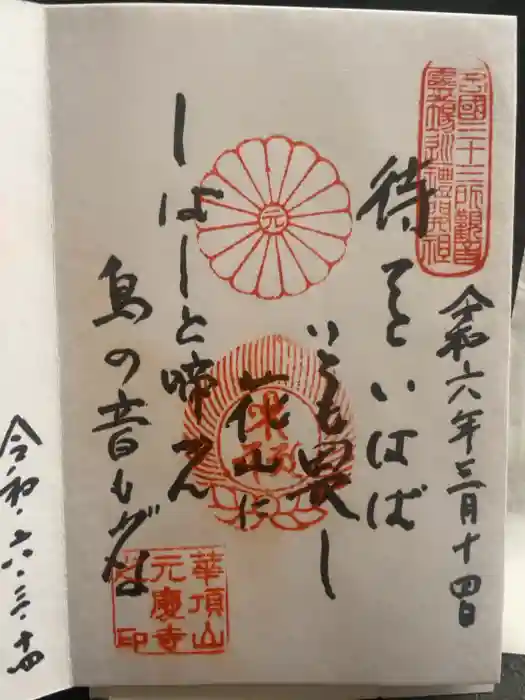 西國三十三所觀音
靈場巡禮開祖
令和六年三月十四日
待てといはば
いとも畏し
花山に
しばしと啼かん
鳥の音もがな
元
華頂山
元慶寺
之印
令和・六・三・十四